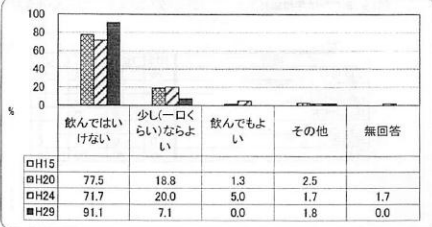 100
80
60
40
20
0
%
飲んではい
けない
少し(一口く
らい)ならよ
い
飲んでもよ
い
その他
無回答
□H15
H20 77.5 18.8 1.3 2.5
H24 71.7 20.0 5.0 1.7 1.7
■H29 91.1 7.1 0.0 1.8 0.0